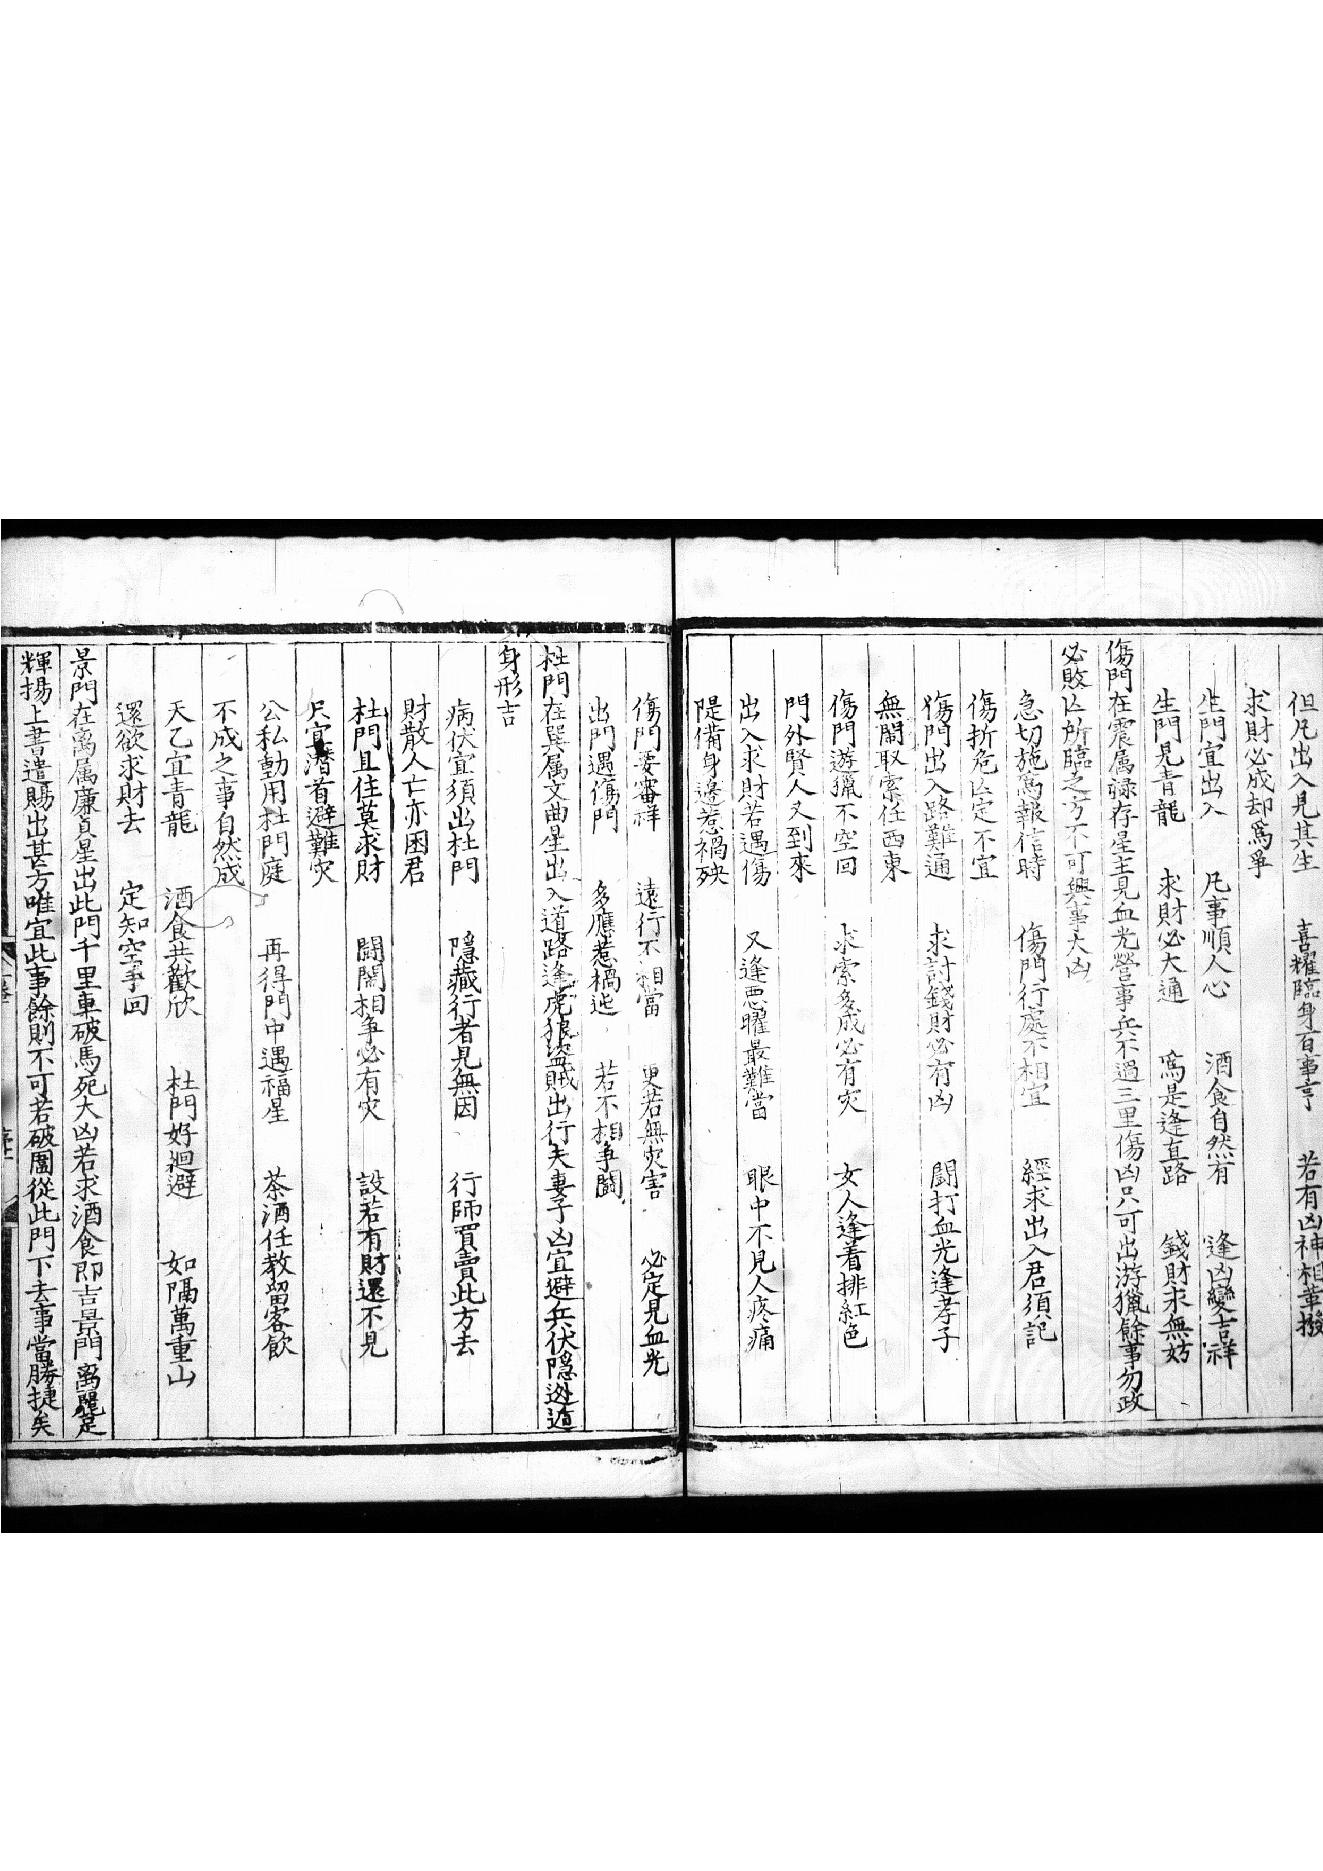 但凡出入見其生　喜耀臨身百事亨　若有凶神相革撥
求財必成却爲爭
生門宜出入　凡事順人心　酒食自然有　逢凶變吉祥
生門見青龍　求財必大通　爲是逢直路　錢財求無妨
傷門在震属禄存星主見血光營事兵不過三里傷凶只可出游獵餘事勿政
必敗凶所臨之方不可興事大凶
急切施爲報信時　傷門行處不相宜　經求出入君須記
傷折危凶定不宜
傷門出入路難通　求討錢財必有凶　闘打血光逢孝子
無閙取索任西東
傷門遊獵不空回　求索多成必有灾　女人逢着排紅色
門外賢人又到來
出入求財若遇傷　又逢悪曜最難當　眼中不見人疼痛
隄備身邊惹禍殃
傷門要審祥　遠行不相當　更若無灾害　必定見血光
出門遇傷門　多應惹禍迍　若不相爭闘
杜門在巽属文曲星出入道路逢虎狼盜賊出行夫妻子凶宜避兵伏隱逊遁
身形吉
病伏宜須出杜門　隱藏行者見無因　行師買賣此方去
財散人亡亦困君
杜門且住莫求財　闘閙相争必有灾　設若有財還不見
只宜潛首避難灾
公私動用杜門庭　再得門中遇福星　茶酒任教留客飲
不成之事自然成
天乙宜青龍　酒食共歡欣　杜門好廻避　如隔萬重山
還欲求財去　定知空事回
景門在离属廉貞星出此門千里車破馬死大凶若求酒食即吉景門离麗定
輝揚上書遣賜出甚方唯宜此事餘則不可若破圍從此門下去事當勝捷矣